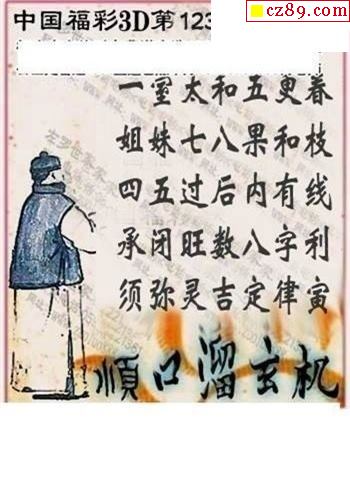 中国福彩3D第123
cz89.com
一室太和五更春
姐妹七八果和枝
四五过后内有线
承闭旺数八字利
须弥灵吉定律寅
顺口溜玄机